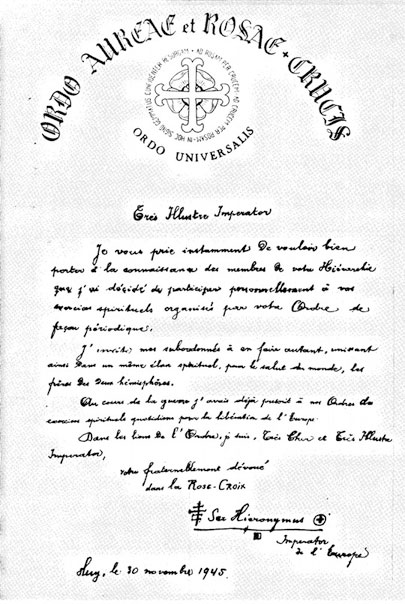 ORDO AUREAE et ROSAE + CRUCIS
AD ROSAM PER CRUCEM AD CRUCEM PER ROSAM IN HOC SIGNO GEMMATUS
RESURGAM
ORDO UNIVERSALIS
Très Illustre Imperator
Je vous prie instamment de vouloir bien
porter à la connaissance des membres de votre Hiérarchie
que j'ai décidé de participer personnellement à vos
exercices spirituels organisés par votre Ordre de
façon périodique.
J'invite mes subordonnés à en faire autant, unissant
ainsi dans un même élan spirituel, pour le salut du monde, les
frères des deux hémisphères.
Au cours de la guerre j'avais déjà à nos Ordres des
exercices spirituels quotidiens pour la libération de l'Europe.
Dans les liens de l'Ordre, je suis, Très Cher et Très Illustre
Imperator,
votre fraternellement dévoué
dans la ROSE-CROIX
Sar Hieronymus
Imperator
de l'Europe
Huy, le 30 novembre 1945.